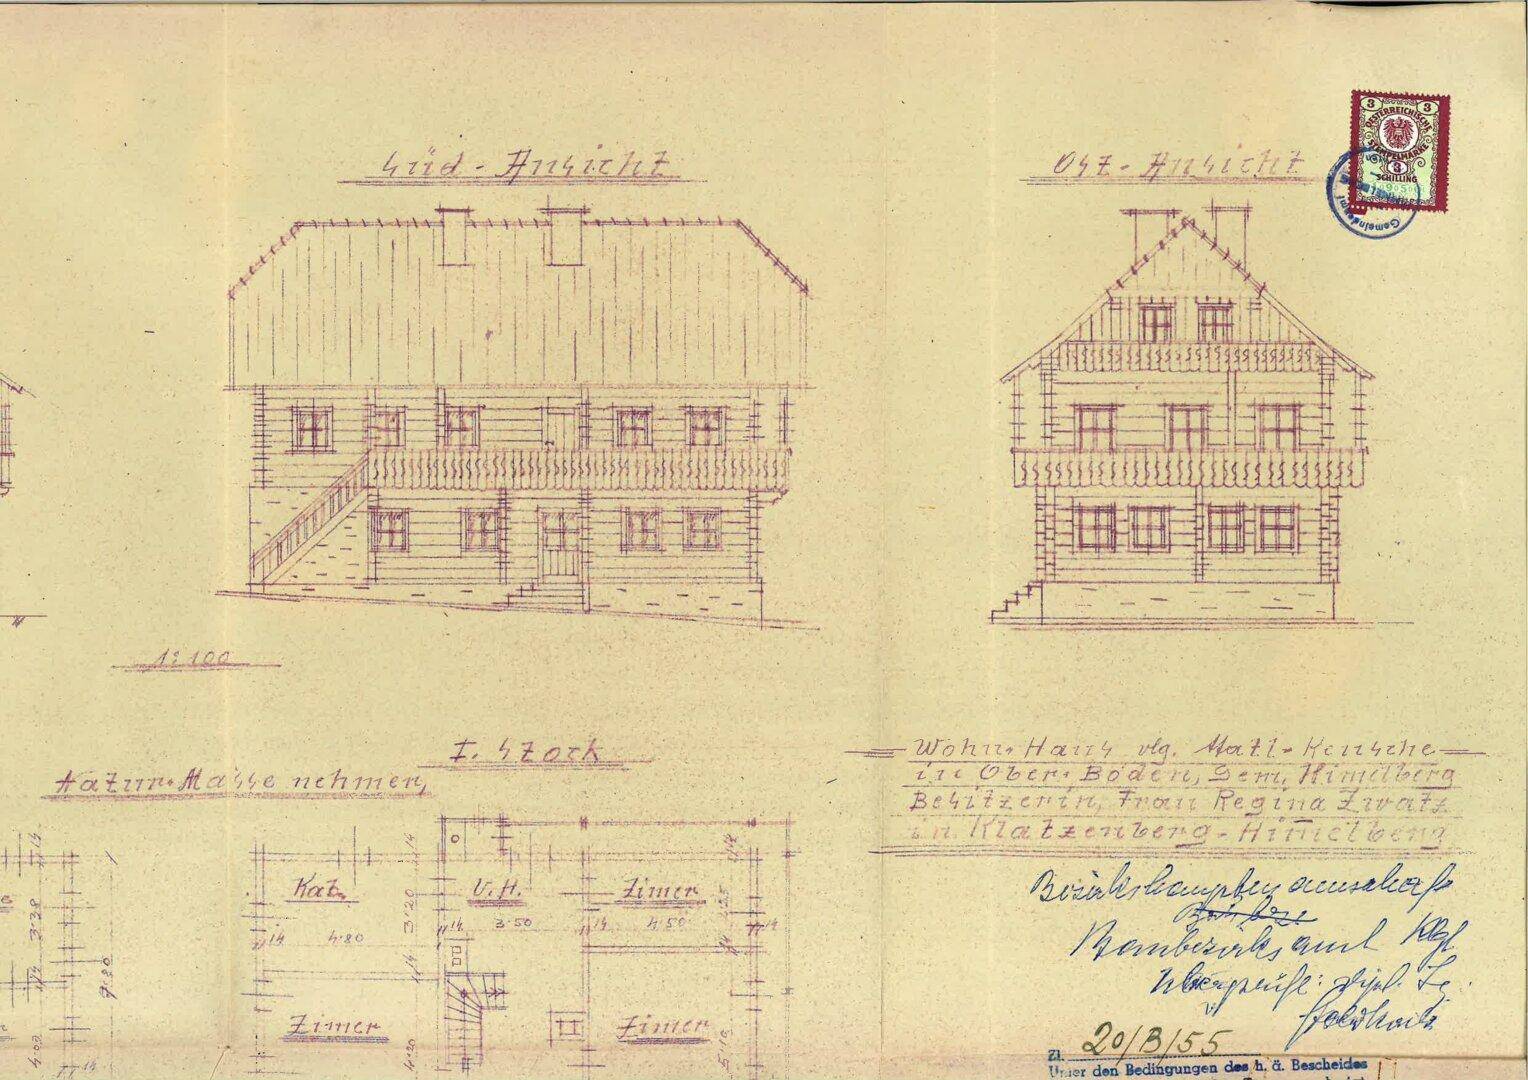 Süd-Ansicht
Ost-Ansicht
3 3
OESTERREICHISCHE
STEMPELMARKE
3
SCHILLING
Gemeindeamt
1:100
I. Stock
Natur-Masse nehmen,
Wohn-Haus vlg. Matl-Keusche
in Ober-Boden, Gem. Himelberg
Besitzerin, Frau Regina Zwatz
in Klatzenberg-Himelberg
14
3·38
14
4·00
7·80
Kab.
14
4·80
14
3·20
14
4·20
V.H.
14
3·50
14
Zimer
4·50
14
14
14
5·10
Zimer
Zimer
Bezirkshauptmannschaft
Baubezirksamt Kgf
überprüft: Dipl. Ing.
Zl. 20/B/55
Unter den Bedingungen des h. ä. Bescheides